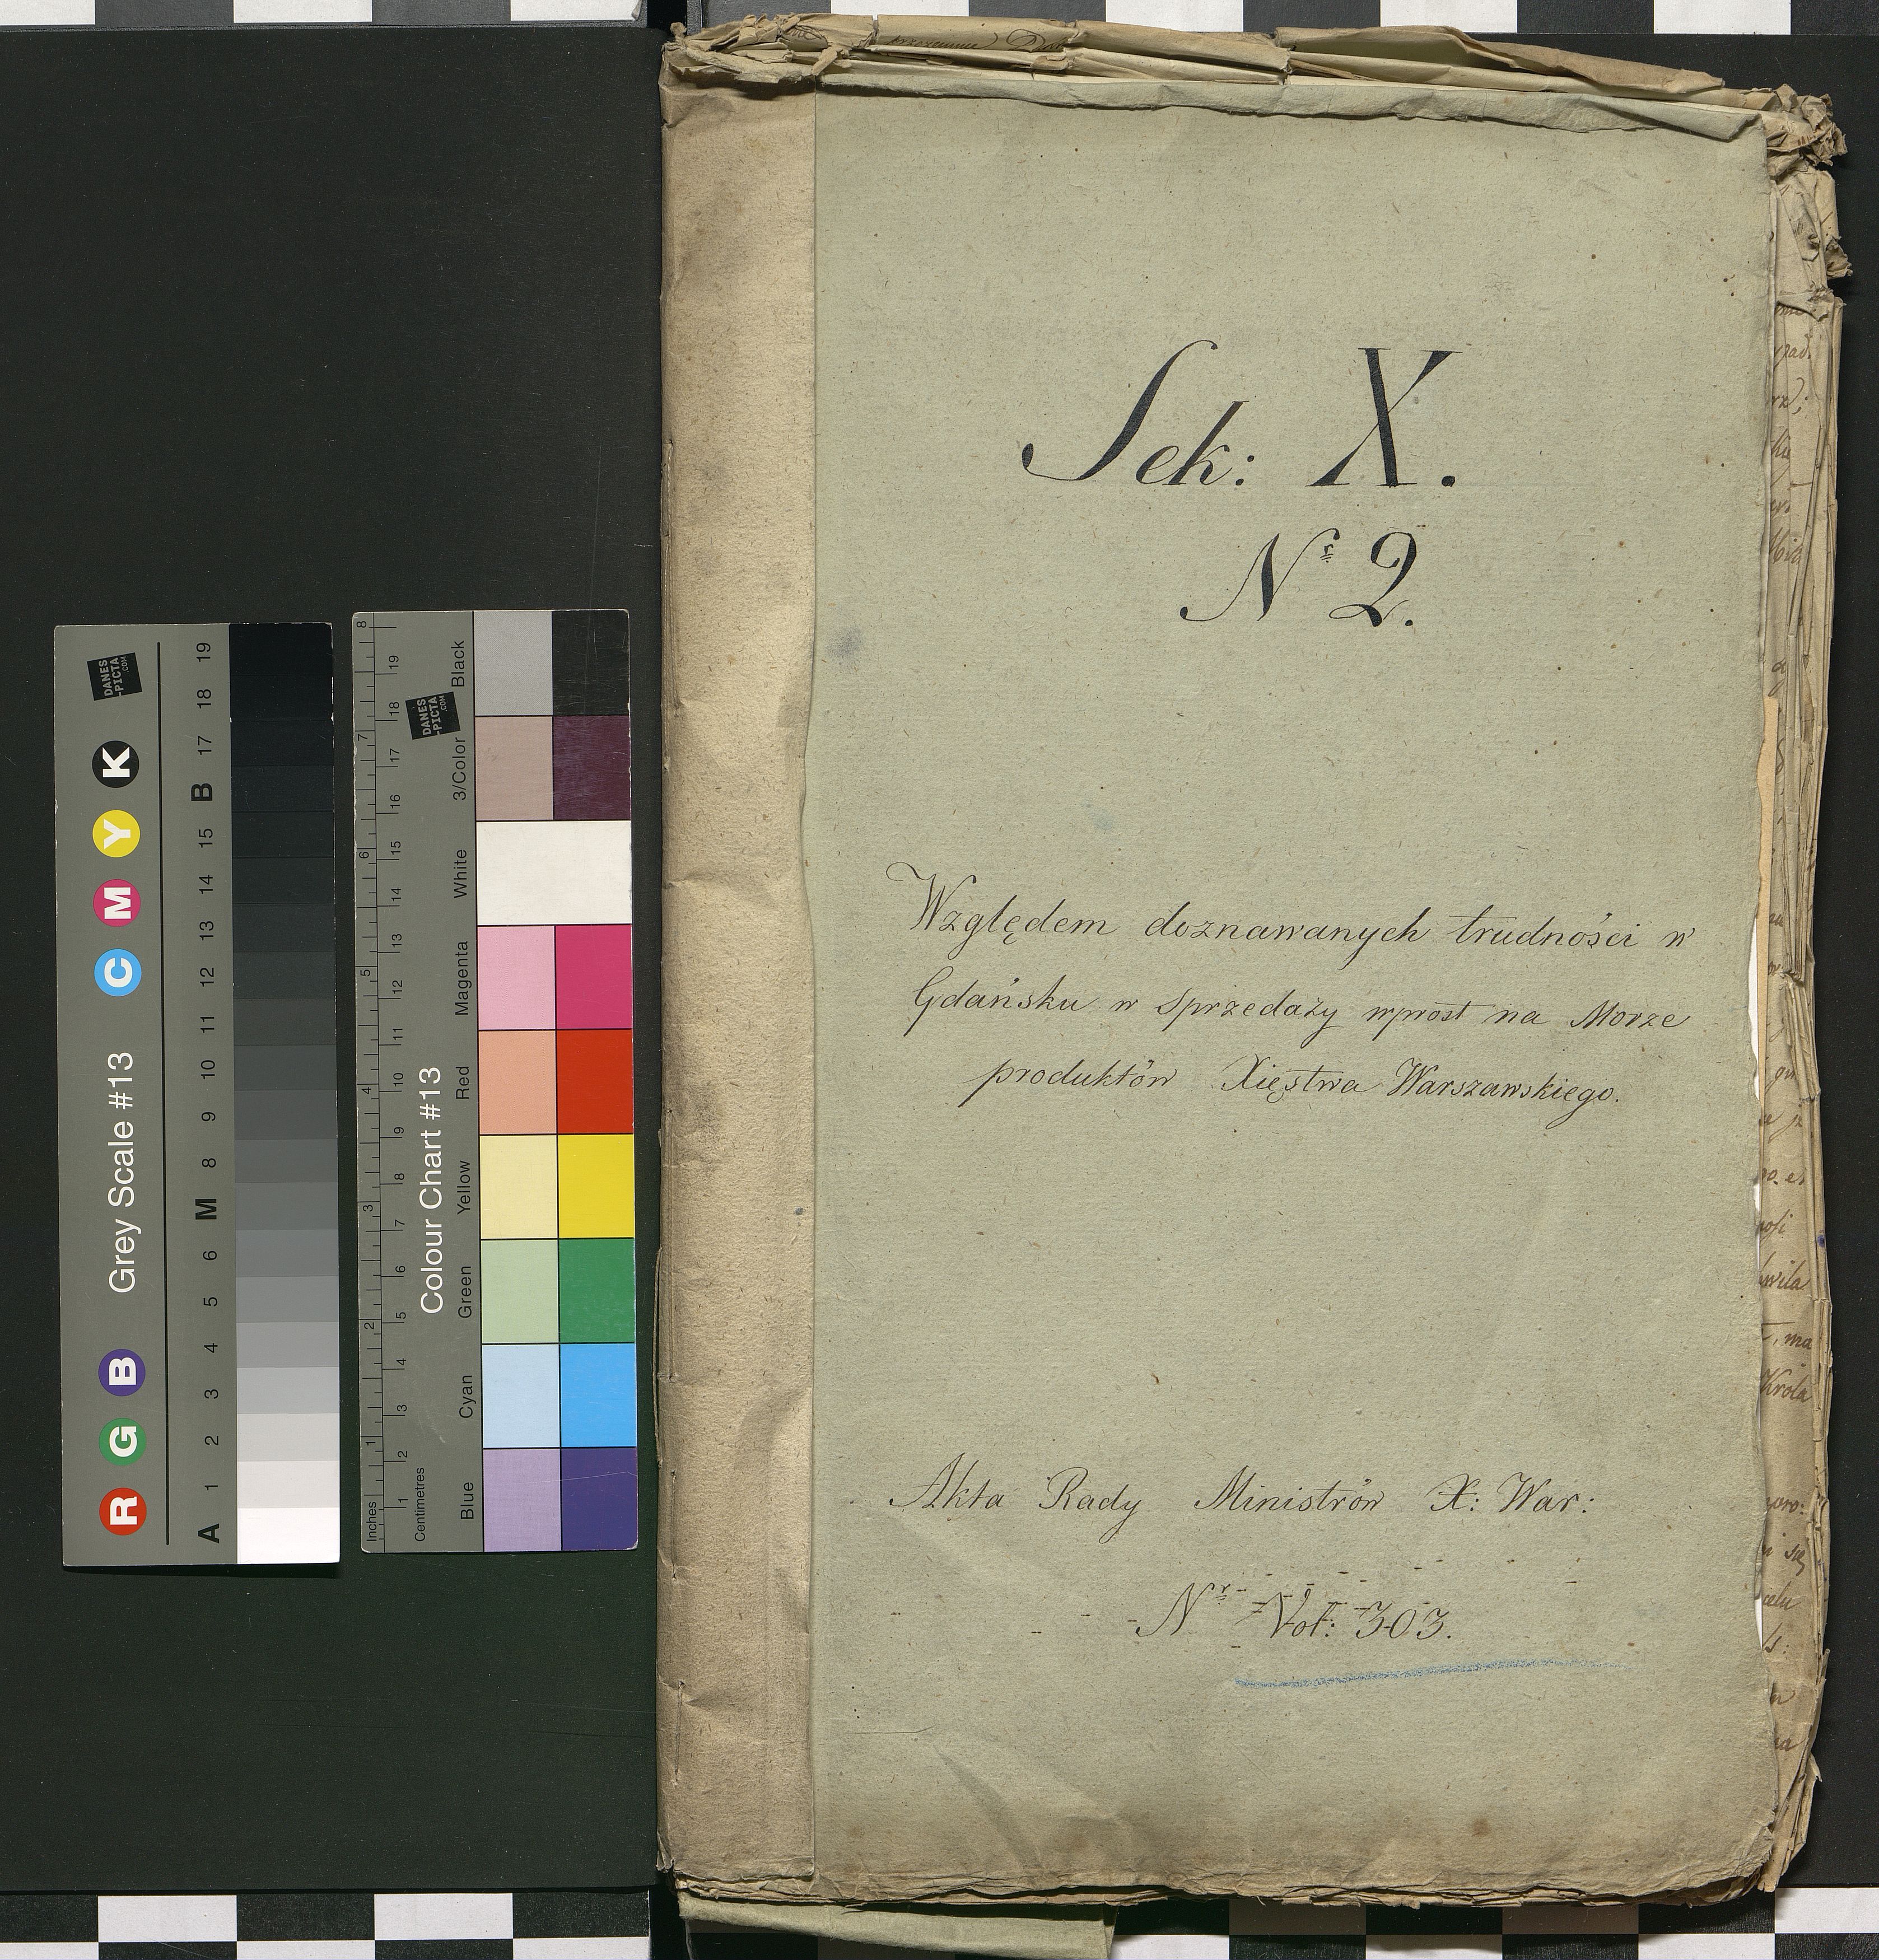 Sek: X.
Nr 2.
Względem doznawanych trudności w
Gdańsku w sprzedaży wprost na Morze
produktów Xięstwa Warszawskiego.
Akta Rady Ministrów X: War:
Nr Vol: 303.
Grey Scale #13
R G B C M Y K
A 1 2 3 4 5 6 M 8 9 10 11 12 13 14 15 B 17 18 19
DANES
-PICTA
.COM
Colour Chart #13
Blue Cyan Green Yellow Red Magenta White 3/Color Black
DANES
-PICTA
.COM
Inches 1 2 3 4 5 6 7 8
Centimetres 1 2 3 4 5 6 7 8 9 10 11 12 13 14 15 16 17 18 19
Krola
się
celu